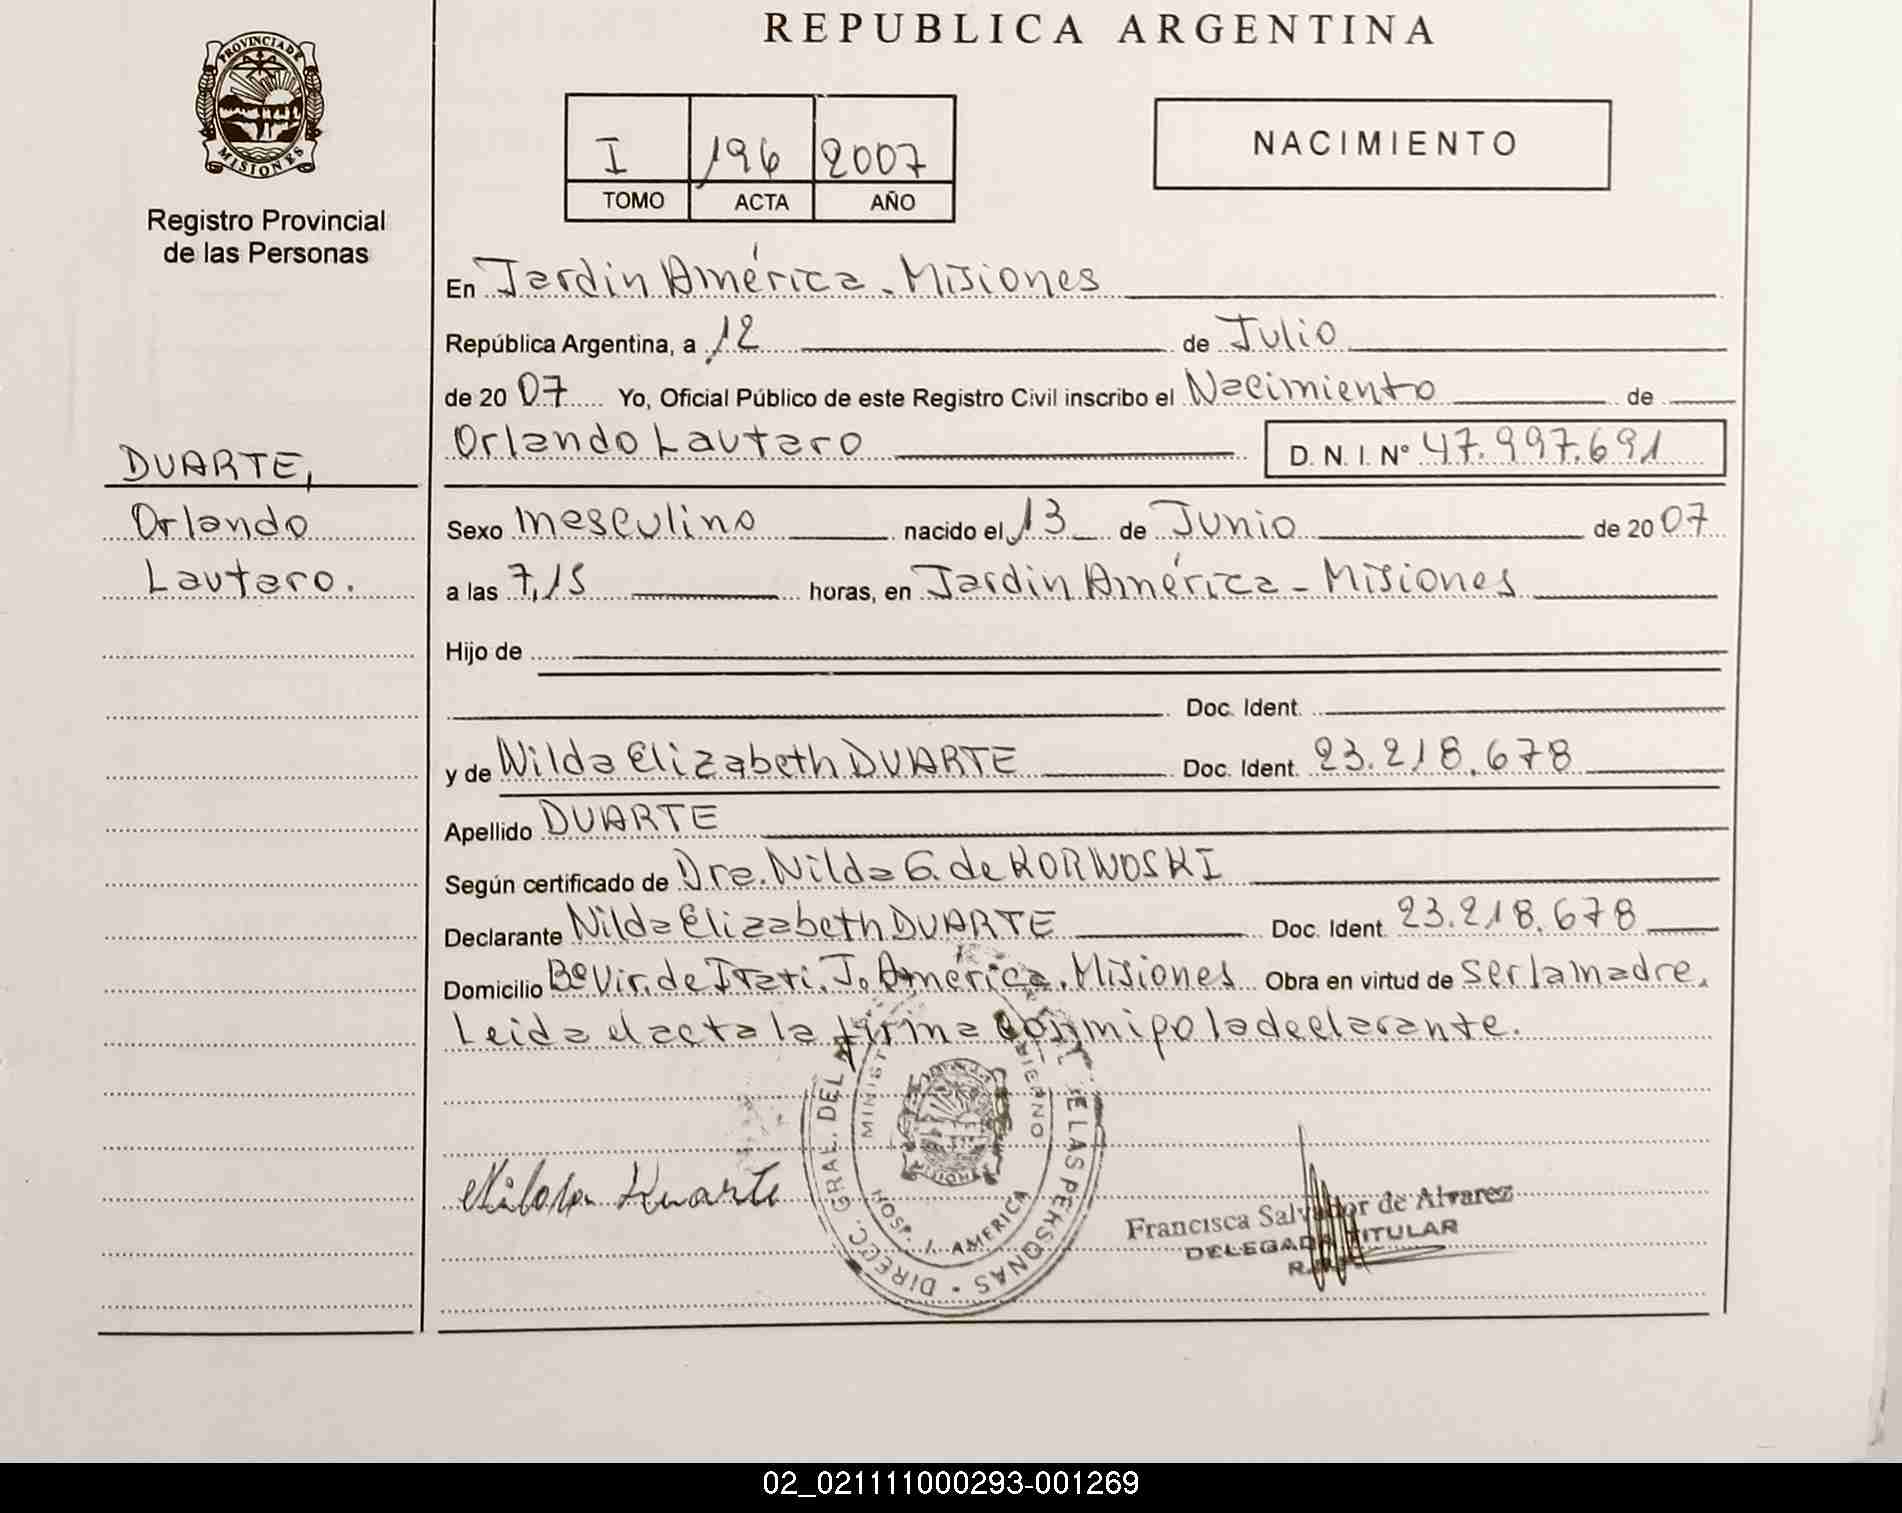 REPUBLICA ARGENTINA
PROVINCIA DE
MISIONES
Registro Provincial
de las Personas
I 196 2007
TOMO ACTA AÑO
NACIMIENTO
En Jardin América - Misiones
República Argentina, a 12 de Julio
de 2007 Yo, Oficial Público de este Registro Civil inscribo el Nacimiento de
Orlando Lautaro D. N. I. Nº 47.997.691
DUARTE,
Orlando
Lautaro.
Sexo masculino nacido el 13 de Junio de 2007
a las 7,15 horas, en Jardin América - Misiones
Hijo de
Doc. Ident.
y de Nilda Elizabeth DUARTE Doc. Ident. 23.218.678
Apellido DUARTE
Según certificado de Dra. Nilda G. de KORNOSKI
Declarante Nilda Elizabeth DUARTE Doc. Ident. 23.218.678
Domicilio Bº Vir. de Itati. J. América. Misiones Obra en virtud de ser la madre.
Leida el acta la firma conmigo la declarante.
DIRECC. GRAL. DEL
DE LAS PERSONAS
HOSP. J. AMERICA
Nilda Duarte
Francisca Salvador de Alvarez
DELEGADA TITULAR
02_021111000293-001269